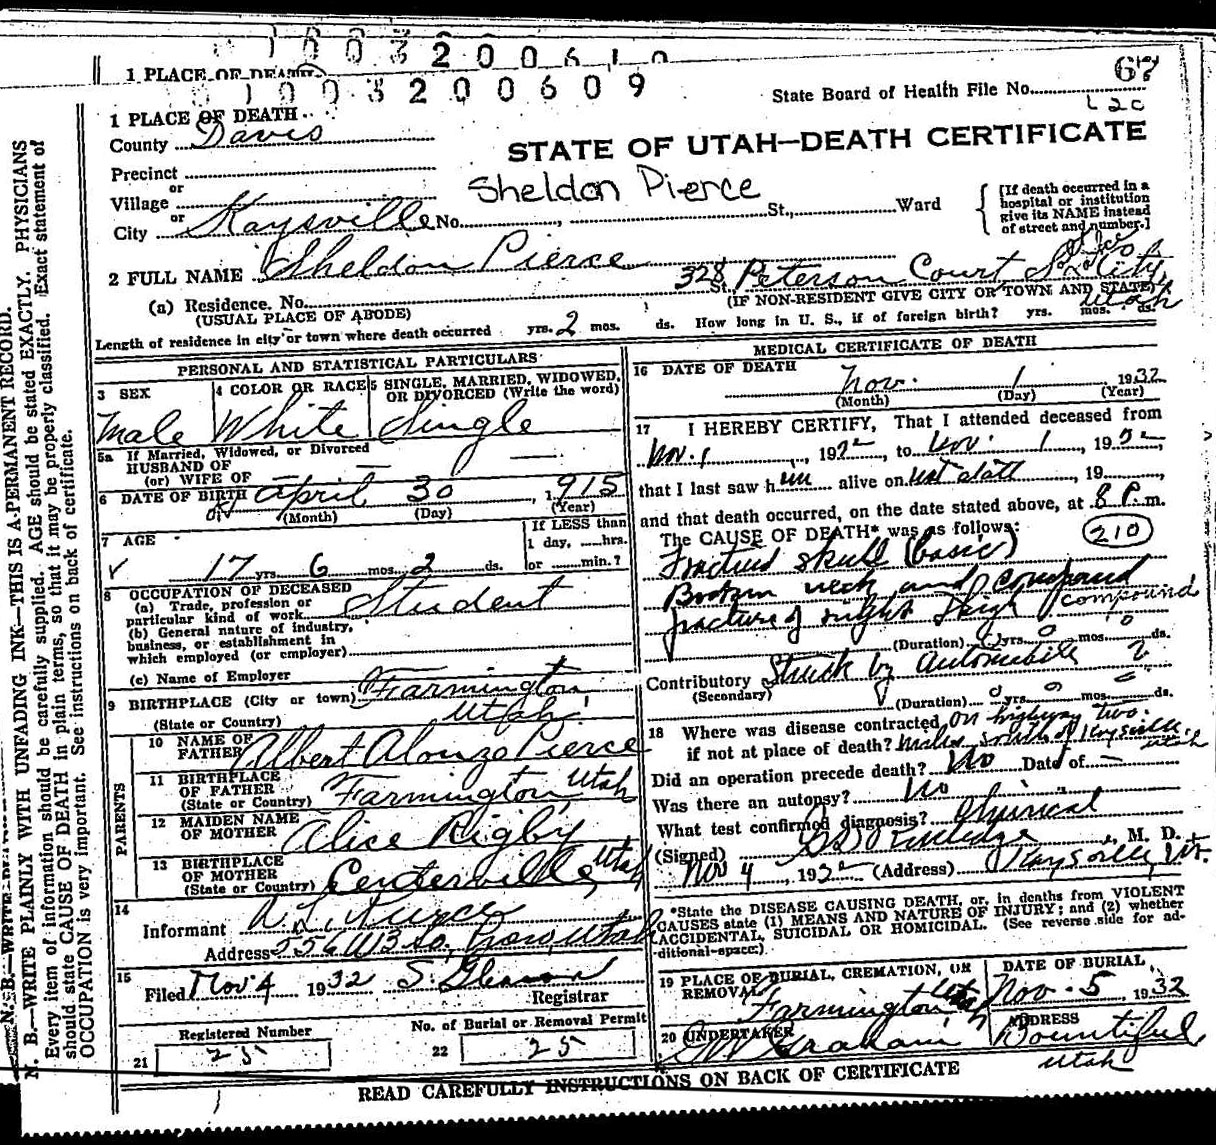 1003200610
1 PLACE OF DEATH
1003200609
67
State Board of Health File No.
L 20
1 PLACE OF DEATH
County Davis
STATE OF UTAH—DEATH CERTIFICATE
Precinct
or
Village
Sheldon Pierce
or
City Kaysville No. St., Ward
[If death occurred in a
hospital or institution
give its NAME instead
of street and number.]
2 FULL NAME Sheldon Pierce
(a) Residence. No. 328 St. Peterson Court City,
Utah
(USUAL PLACE OF ABODE)
(IF NON-RESIDENT GIVE CITY OR TOWN AND STATE)
Length of residence in city or town where death occurred yrs. 2 mos. ds. How long in U. S., if of foreign birth? yrs. mos. ds.
PERSONAL AND STATISTICAL PARTICULARS
3 SEX
Male
4 COLOR OR RACE
White
5 SINGLE, MARRIED, WIDOWED,
OR DIVORCED (Write the word)
Single
5a If Married, Widowed, or Divorced
HUSBAND OF
(or) WIFE OF
6 DATE OF BIRTH April 30, 1915
(Month) (Day) (Year)
7 AGE
17 yrs. 6 mos. 2 ds.
If LESS than
1 day, hrs.
or min.?
8 OCCUPATION OF DECEASED
(a) Trade, profession or
particular kind of work Student
(b) General nature of industry,
business, or establishment in
which employed (or employer)
(c) Name of Employer
9 BIRTHPLACE (City or town) Farmington
(State or Country) Utah
PARENTS
10 NAME OF
FATHER Albert Alonzo Pierce
11 BIRTHPLACE
OF FATHER
(State or Country) Farmington, Utah
12 MAIDEN NAME
OF MOTHER Alice Rigby
13 BIRTHPLACE
OF MOTHER
(State or Country) Centerville, Utah
14
Informant
Address 556 W 3 So, Provo, Utah
15
Filed Nov 4 1932 S. Gleason
Registrar
Registered Number
21 25
No. of Burial or Removal Permit
22 25
MEDICAL CERTIFICATE OF DEATH
16 DATE OF DEATH
Nov. 1 1932
(Month) (Day) (Year)
17 I HEREBY CERTIFY, That I attended deceased from
Nov. 1, 1932, to Nov. 1, 1932,
that I last saw him alive on 19
and that death occurred, on the date stated above, at 8 P. m.
The CAUSE OF DEATH* was as follows: 210
Fractured skull (basic)
Broken neck and compound
fracture of right thigh compound
(Duration) 0 yrs. 0 mos. 0 ds.
Contributory Struck by Automobile
(Secondary)
(Duration) 0 yrs. 0 mos. 0 ds.
18 Where was disease contracted On highway two
if not at place of death? miles south of Kaysville,
Utah
Did an operation precede death? No Date of —
Was there an autopsy? No
What test confirmed diagnosis? Physical
(Signed) Rutledge, M. D.
Nov 4, 1932 (Address) Kaysville, Ut.
*State the DISEASE CAUSING DEATH, or, in deaths from VIOLENT
CAUSES state (1) MEANS AND NATURE OF INJURY; and (2) whether
ACCIDENTAL, SUICIDAL OR HOMICIDAL. (See reverse side for ad-
ditional space)
19 PLACE OF BURIAL, CREMATION, OR
REMOVAL
Farmington Utah
DATE OF BURIAL
Nov. 5, 1932
20 UNDERTAKER
Graham
ADDRESS
Bountiful
Utah
READ CAREFULLY INSTRUCTIONS ON BACK OF CERTIFICATE
N. B.—WRITE PLAINLY WITH UNFADING INK—THIS IS A PERMANENT RECORD.
Every item of information should be carefully supplied. AGE should be stated EXACTLY. PHYSICIANS
should state CAUSE OF DEATH in plain terms, so that it may be properly classified. Exact statement of
OCCUPATION is very important. See instructions on back of certificate.